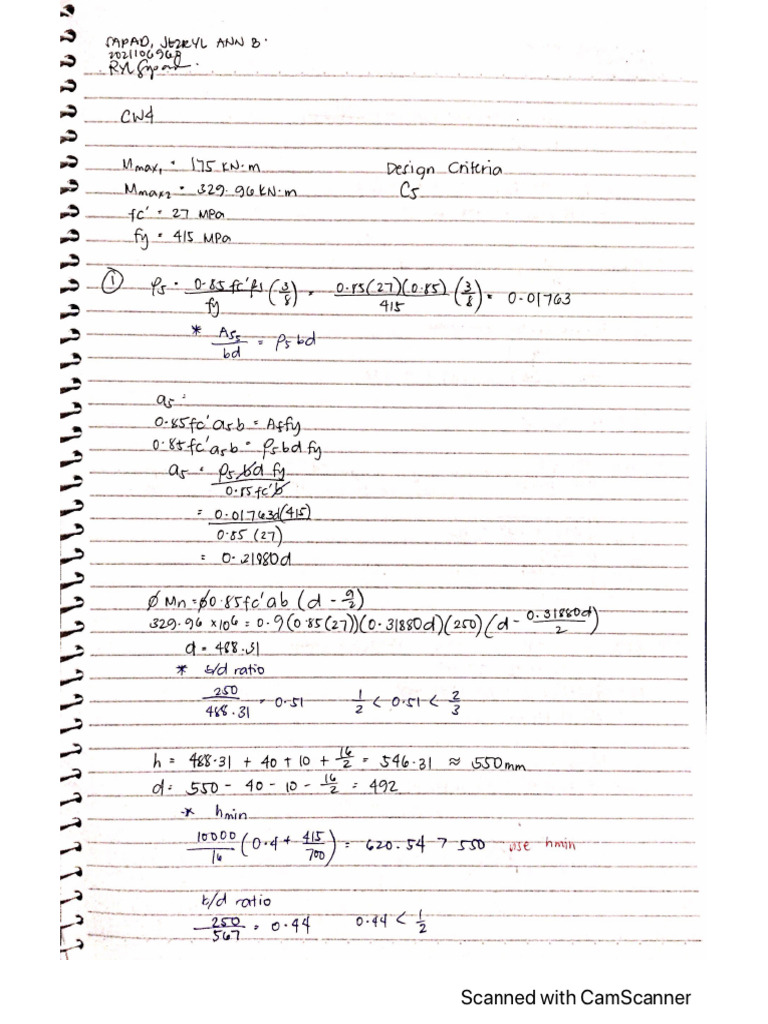 SAPAD, JEZRYL ANN B.
CW4
Mmax₁ = 175 KN·m
Design Criteria
Mmax₂ = 329.96 KN·m
C5
fc' = 27 MPa
fy = 415 MPa
① ρ5 = 0.85 fc' β1 / fy (3/8) = 0.85(27)(0.85) / 415 (3/8) = 0.01763
* As5 / bd = ρ5 bd
a5 =
0.85 fc' a5 b = As fy
0.85 fc' a5 b = ρ5 b d fy
a5 = ρ5 b d fy / 0.85 fc' b
= 0.01763d(415) / 0.85 (27)
= 0.31880d
∅ Mn = ∅ 0.85 fc' ab (d - a/2)
329.96 × 10⁶ = 0.9(0.85(27))(0.31880d)(250)(d - 0.31880d / 2)
d = 488.31
* b/d ratio
250 / 488.31 = 0.51 1/2 < 0.51 < 2/3
h = 488.31 + 40 + 10 + 16/2 = 546.31 ≈ 550mm
d = 550 - 40 - 10 - 16/2 = 492
* hmin
10000 / 16 (0.4 + 415/700) = 620.54 > 550 use hmin
b/d ratio
250 / 567 = 0.44 0.44 < 1/2
Scanned with CamScanner